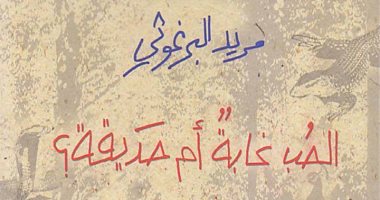 مريد البرغوثي
الحُب غابةٌ أم حَديقة؟